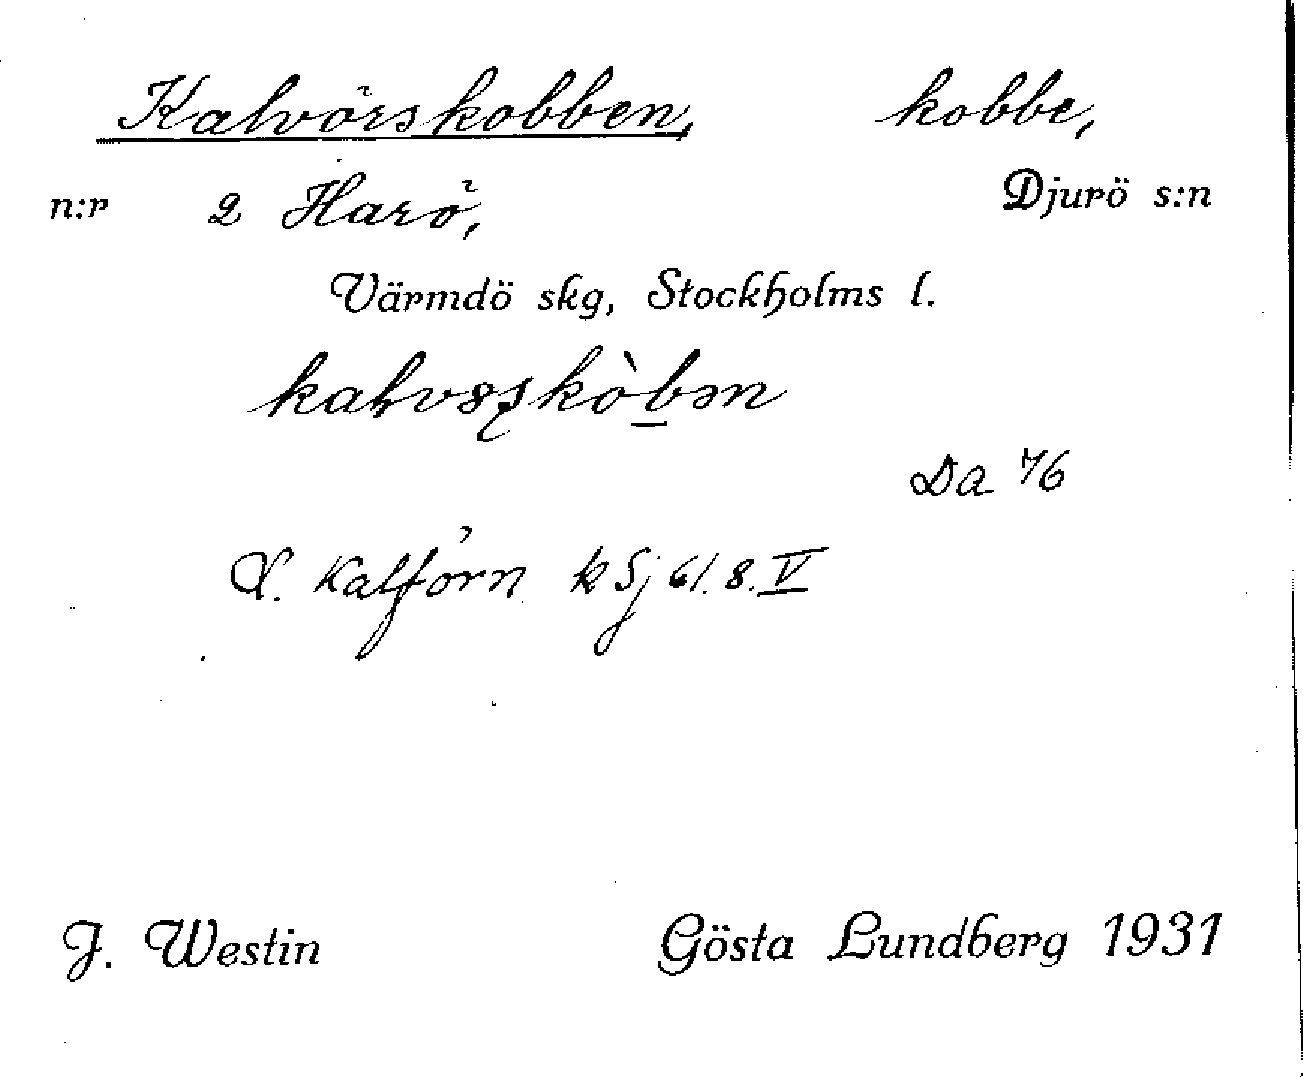 Kalvörskobben, kobbe,
n:r 2 Harö, Djurö s:n
Värmdö skg, Stockholms l.
Da 76
Kalförn k Sj 61.8.V
J. Westin Gösta Lundberg 1931